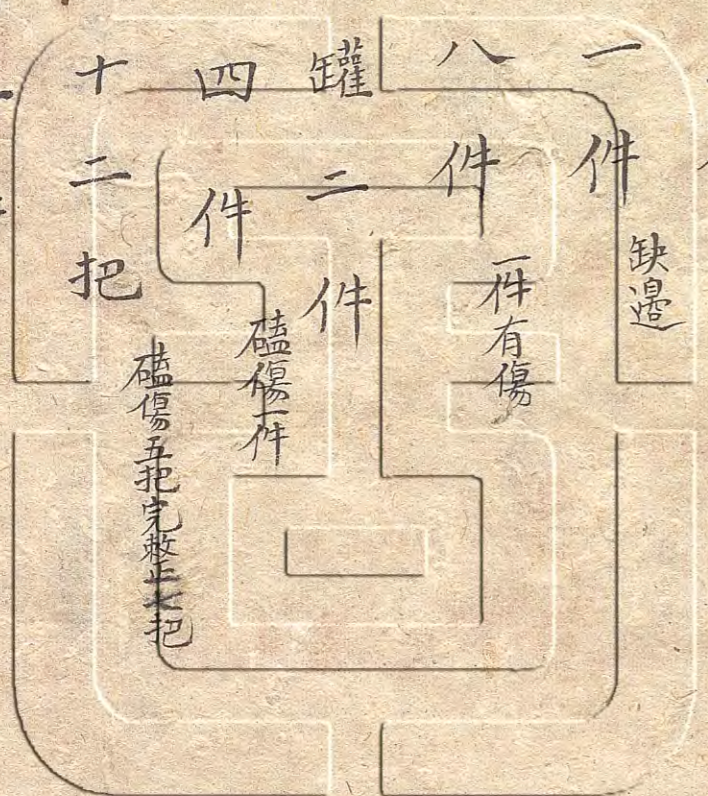 一件 缺邊
八件 一件有傷
罐二件
四件 磕傷一件
十二把 磕傷五把完整七把